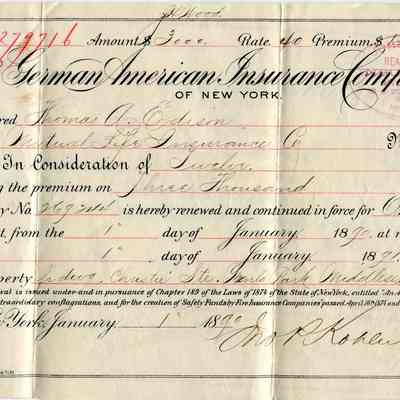 279716 Amount $ 3000. Rate 40 Premium $
German American Insurance Comp
OF NEW YORK.
red Thomas A. Edison
Mutual Life Insurance Co
In Consideration of Twelve
the premium on Three Thousand
y No. 269244 is hereby renewed and continued in force for O
t, from the 1st day of January 1890, at n
1st day of January, 1891,
perty Christie Sts. Menlo Park Middlesex
al is issued under and in pursuance of Chapter 189 of the Laws of 1874 of the State of New York, entitled "An A
traordinary conflagrations, and for the creation of Safety Funds by Fire Insurance Companies" passed April 16th 1874 an
York, January 1st 1890
Jno. P. Kohler